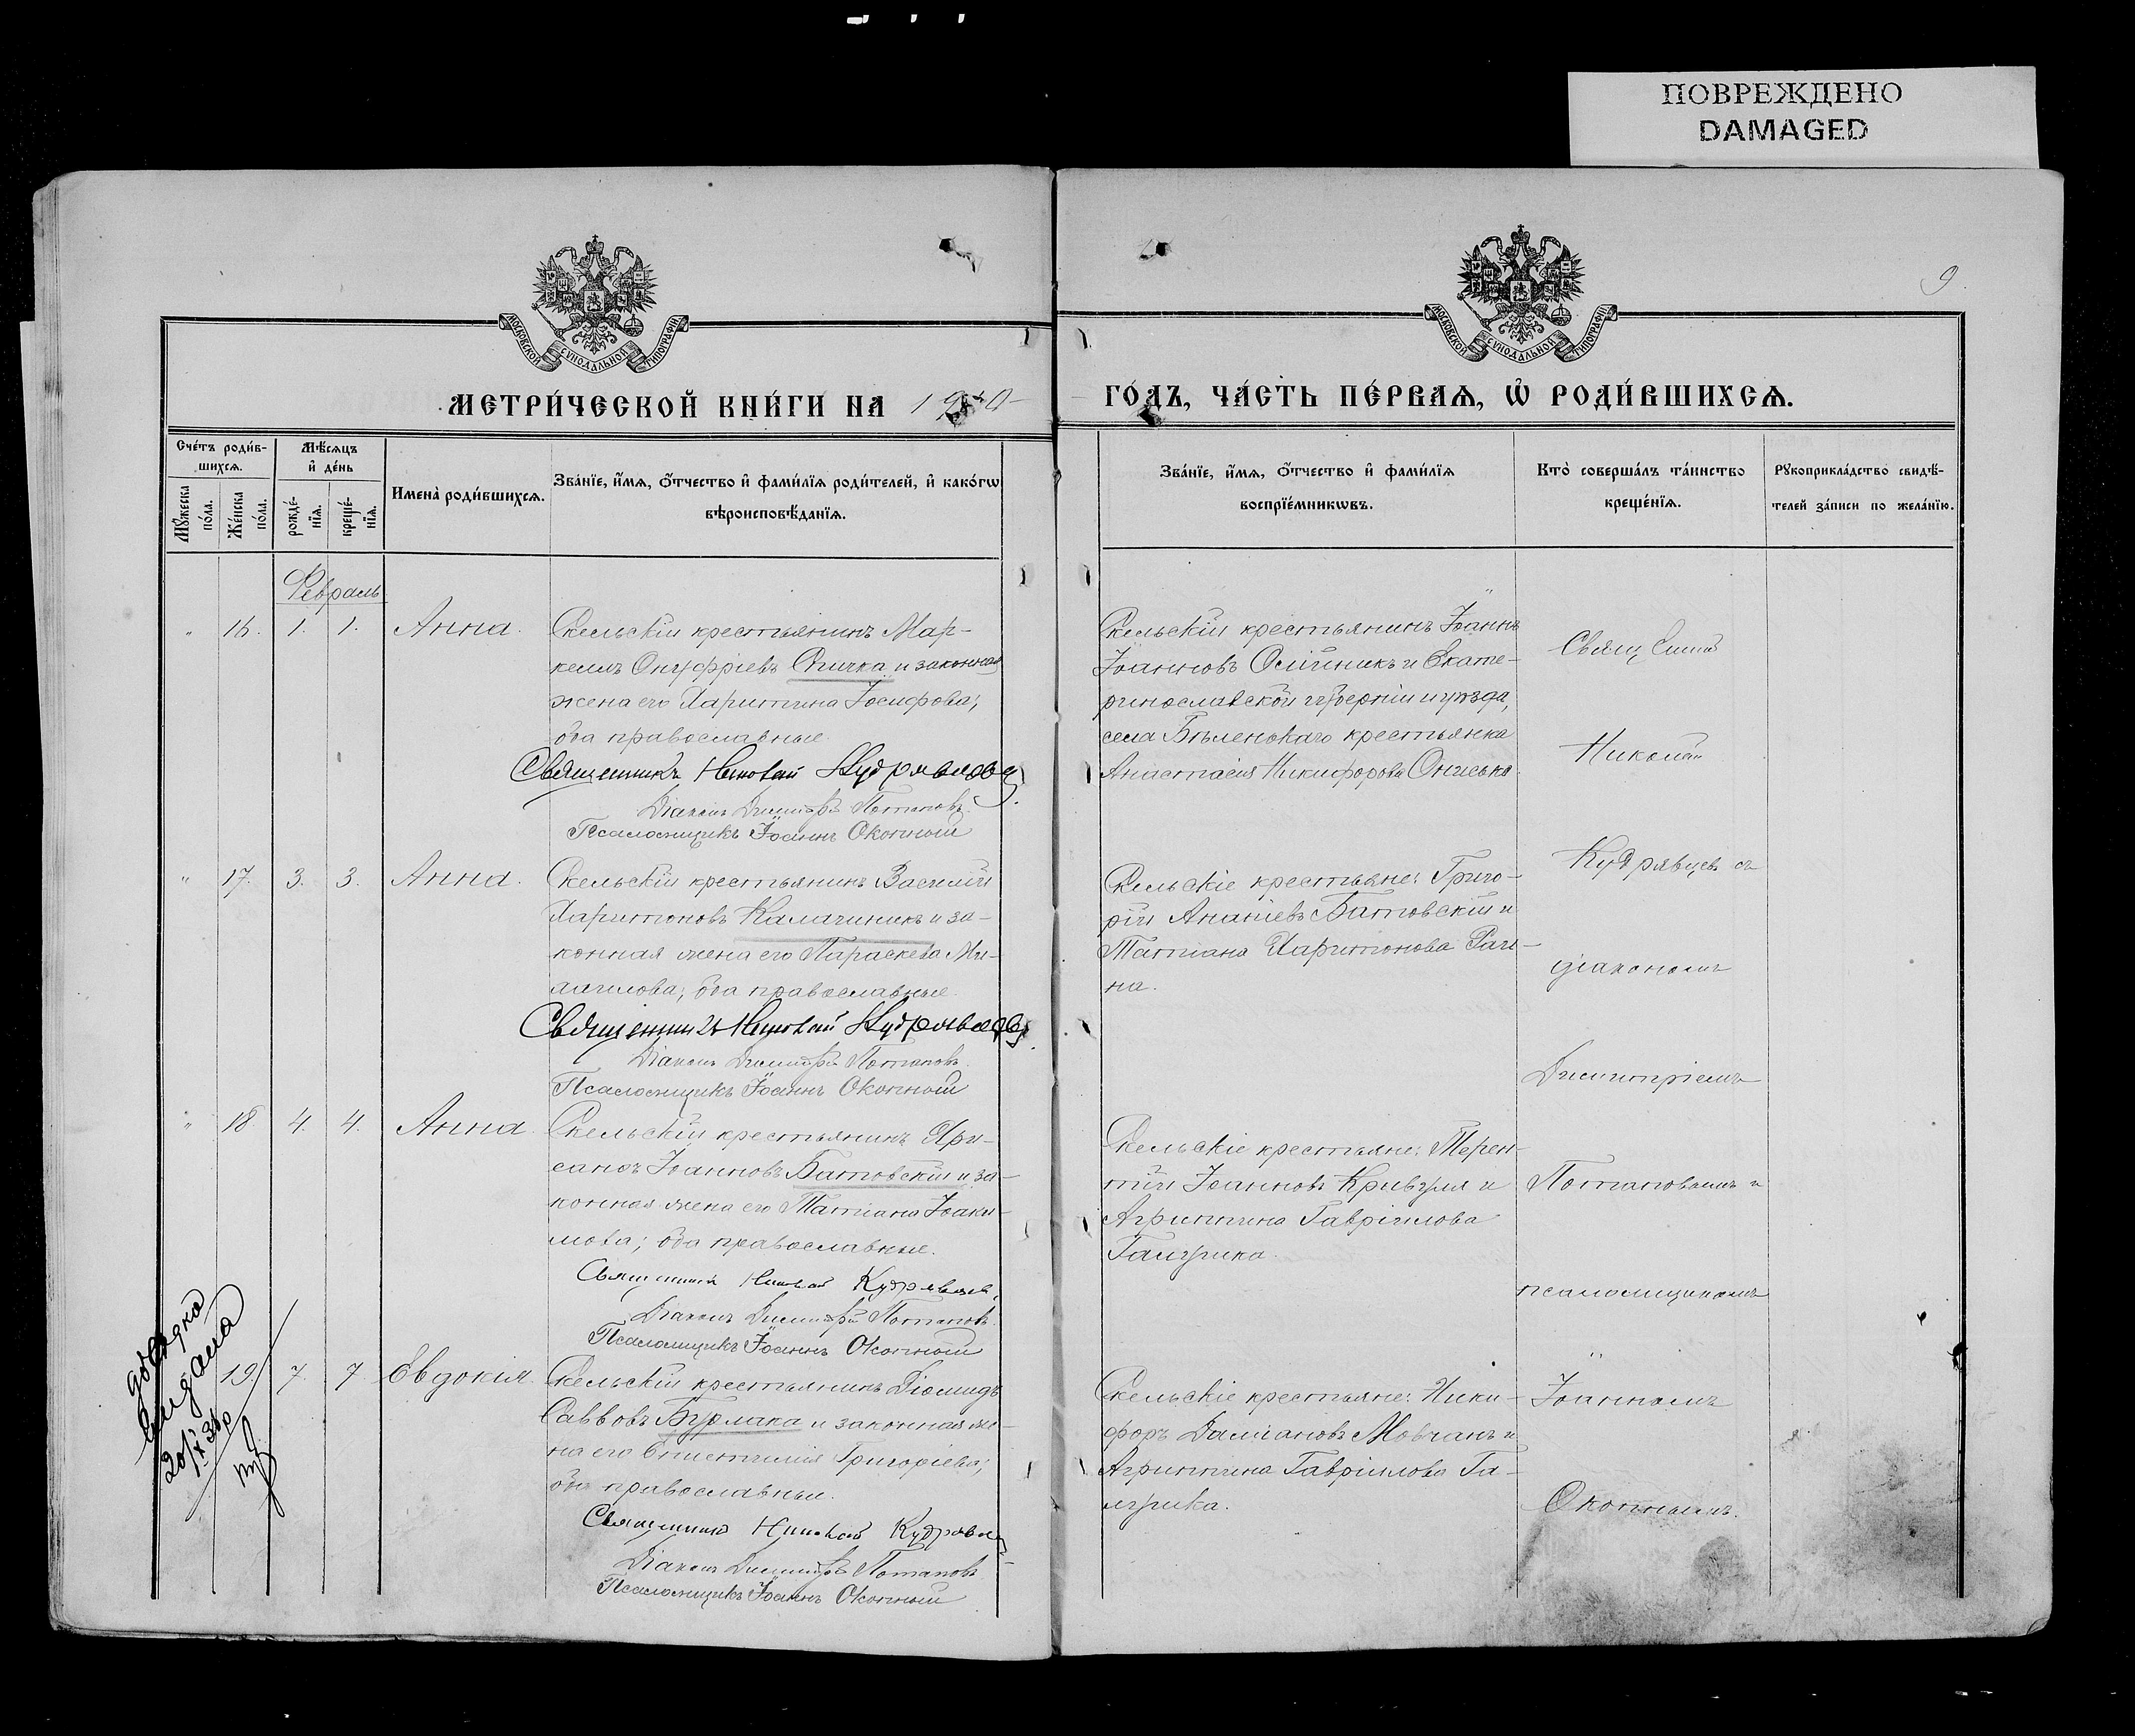 ПОВРЕЖДЕНО
DAMAGED
9
МОСКОВСКОЙ СУНОДАЛЬНОЙ ТИПОГРАФІИ
МОСКОВСКОЙ СУНОДАЛЬНОЙ ТИПОГРАФІИ
МЕТРИ́ЧЕСКОЙ КНИ́ГИ НА 19
ГО́ДЪ, ЧА́СТЬ ПЕ́РВАѦ, Ѡ҆ РОДИ́ВШИХСѦ.
Сче́тъ роди́в-
шихсѧ.
Мѣ́сѧцъ
и҆ де́нь
Мꙋ́жеска
по́ла.
Же́нска
по́ла.
рожде́-
нїѧ.
креще́-
нїѧ.
Имена̀ роди́вшихсѧ.
Зва́нїе, и҆́мѧ, ѻ҆́тчество и҆ фами́лїѧ роди́телей, и҆ како́гѡ
вѣроисповѣ́данїѧ.
Зва́нїе, и҆́мѧ, ѻ҆́тчество и҆ фами́лїѧ
воспрїе́мникѡвъ.
Кто̀ соверша́лъ та́инство
креще́нїѧ.
Рꙋкоприкла́дство свидѣ́-
телей за́писи по жела́нїю.
Февраль
" 16. 1. 1. Анна.
Скельскій крестьянинъ Мар-
келлъ Онуфріевъ Спичка и законная
жена его Харитина Іосифова;
оба православные.
Священникъ Николай Кудрявцевъ
Діаконъ Димитрій Потаповъ
Псаломщикъ Іоаннъ Окопный
Скельскій крестьянинъ Іоаннъ
Іоанновъ Олійникъ и Екате-
ринославской губерніи и уѣзда,
села Бѣленькаго крестьянка
Анастасія Никифорова
" 17. 3. 3. Анна.
Скельскій крестьянинъ Василій
Харитоновъ Калачиникъ и за-
конная жена его Параскева Ми-
хаилова; оба православные.
Священникъ Николай Кудрявцевъ
Діаконъ Димитрій Потаповъ
Псаломщикъ Іоаннъ Окопный
Скельскіе крестьяне: Григо-
рій Ананіевъ Батовскій и
Татіана Харитонова
на.
" 18. 4. 4. Анна
Скельскій крестьянинъ Хри-
санфъ Іоанновъ Батовскій и за-
конная жена его Татіана Іоаки-
мова; оба православные.
Священникъ Николай Кудрявцевъ
Діаконъ Димитрій Потаповъ
Псаломщикъ Іоаннъ Окопный
Скельскіе крестьяне: Терен-
тій Іоанновъ Кривуля и
Агриппина Гавріилова
Галушка.
19. 7. 7. Евдокія.
Скельскій крестьянинъ Діомидъ
Саввовъ Бурлака и законная же-
на его Епистимія Григоріева;
оба православные.
Священникъ Николай Кудрявцевъ
Діаконъ Димитрій Потаповъ
Псаломщикъ Іоаннъ Окопный
Скельскіе крестьяне: Ники-
форъ Даміановъ Мовчанъ и
Агриппина Гавріилова Га-
лушка.
Священникъ
Николай
Кудрявцевъ съ
діакономъ
Димитріемъ
Потаповымъ и
псаломщикомъ
Іоанномъ
Окопнымъ.
довідка
видана